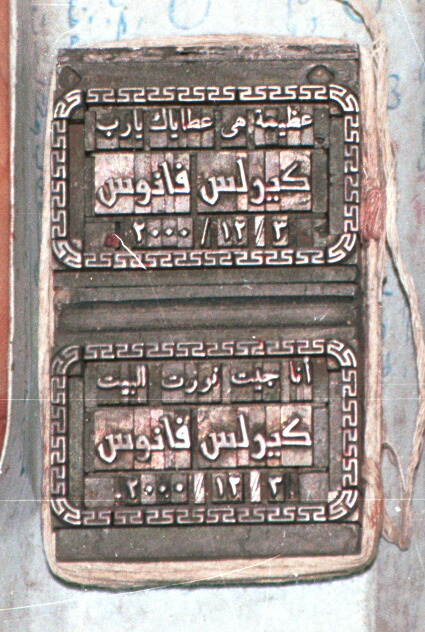 عظيمة هى عطاياك يارب
كيرلس فانوس
٣ / ١٢ / ٢٠٠٠
أنا جيت نورت البيت
كيرلس فانوس
٣ / ١٢ / ٢٠٠٠